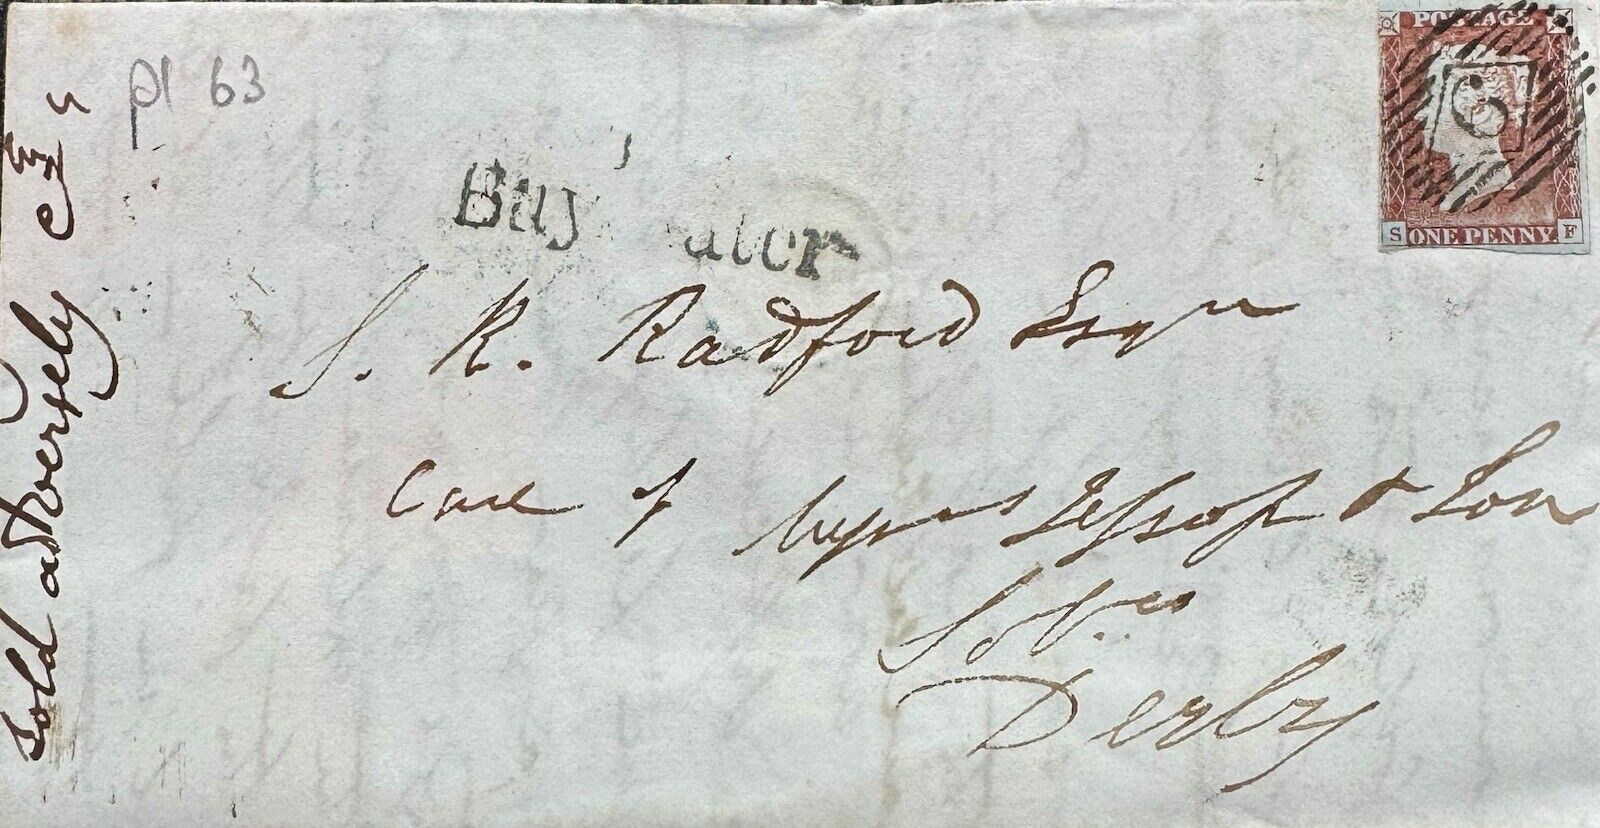 pl 63
POSTAGE
6
S ONE PENNY. F
Bay ater
S. R. Radford Esqr
Care of Jessop & Son
Solrs
Derby
sold adversely